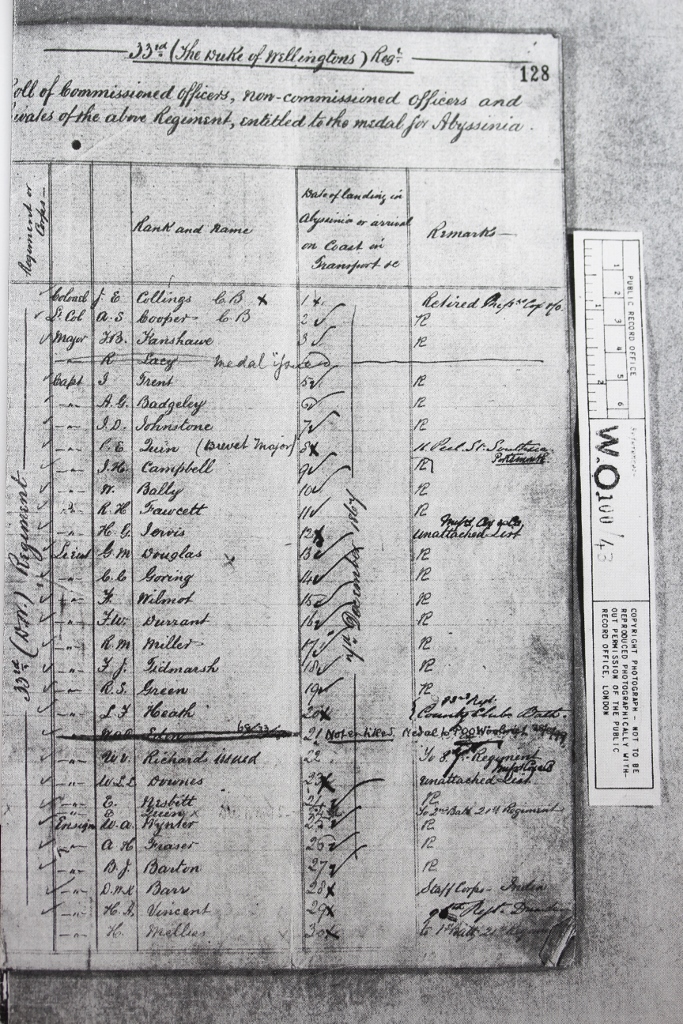 33rd (The Duke of Wellingtons) Regt.
128
oll of Commissioned Officers, Non-commissioned Officers and
ivates of the above Regiment, entitled to the medal for Abyssinia.
Regiment or Corps
Rank and Name
Date of landing in
Abyssinia or arrival
on Coast in
Transport &c
Remarks
33rd (D.W.) Regiment
4th December 1867
Colonel J E Collings C B x 1 x Retired
Lt. Col A. S Cooper C B 2 R
Major F.B. Fanshawe 3 R
R Lacy medal
Capt J Trent 5 R
" A. G. Badgeley 6 R
" J. D. Johnstone 7 R
" C. E Quin (Brevet Major) 8 x 16 Peel St. Southsea
Portsmouth
" J. H. Campbell 9 R
" W. Bally 10 R
" R H Fawcett 11 R
" H. G. Jervis 12 x Unattached List
Lieut G. M Douglas 13 R
" C. C Goring 14 R
" F. Wilmot 15 R
" F.W. Durrant 16 R
" R. M Miller 17 R
" F. J. Gidmarsh 18 R
" R. S. Green 19 R
" L F Heath 20 x County Club Bath.
21 Not entitled. Medal to
" W. Richards issued 22 To Regiment
" W. L. L Downes 23 x Unattached List
" E. Nesbitt 24 R
" E Queen x To 2nd Batt 21st Regiment
Ensign W. A. Wynter 25 R
" A H Fraser 26 R
" B. J. Barton 27 R
" D. M. K Barr 28 x Staff Corps - India
" H. A. Vincent 29 x Regt.
" H. Mellis 30 x To 1st Batt 21st
PUBLIC RECORD OFFICE
1 2 3 4 5 6
1 2
Reference:-
W.O. 100/43
COPYRIGHT PHOTOGRAPH - NOT TO BE
REPRODUCED PHOTOGRAPHICALLY WITH-
OUT PERMISSION OF THE PUBLIC
RECORD OFFICE, LONDON